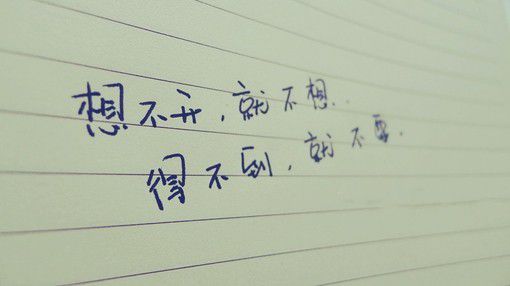 想不开，就不想.
得不到，就不要.